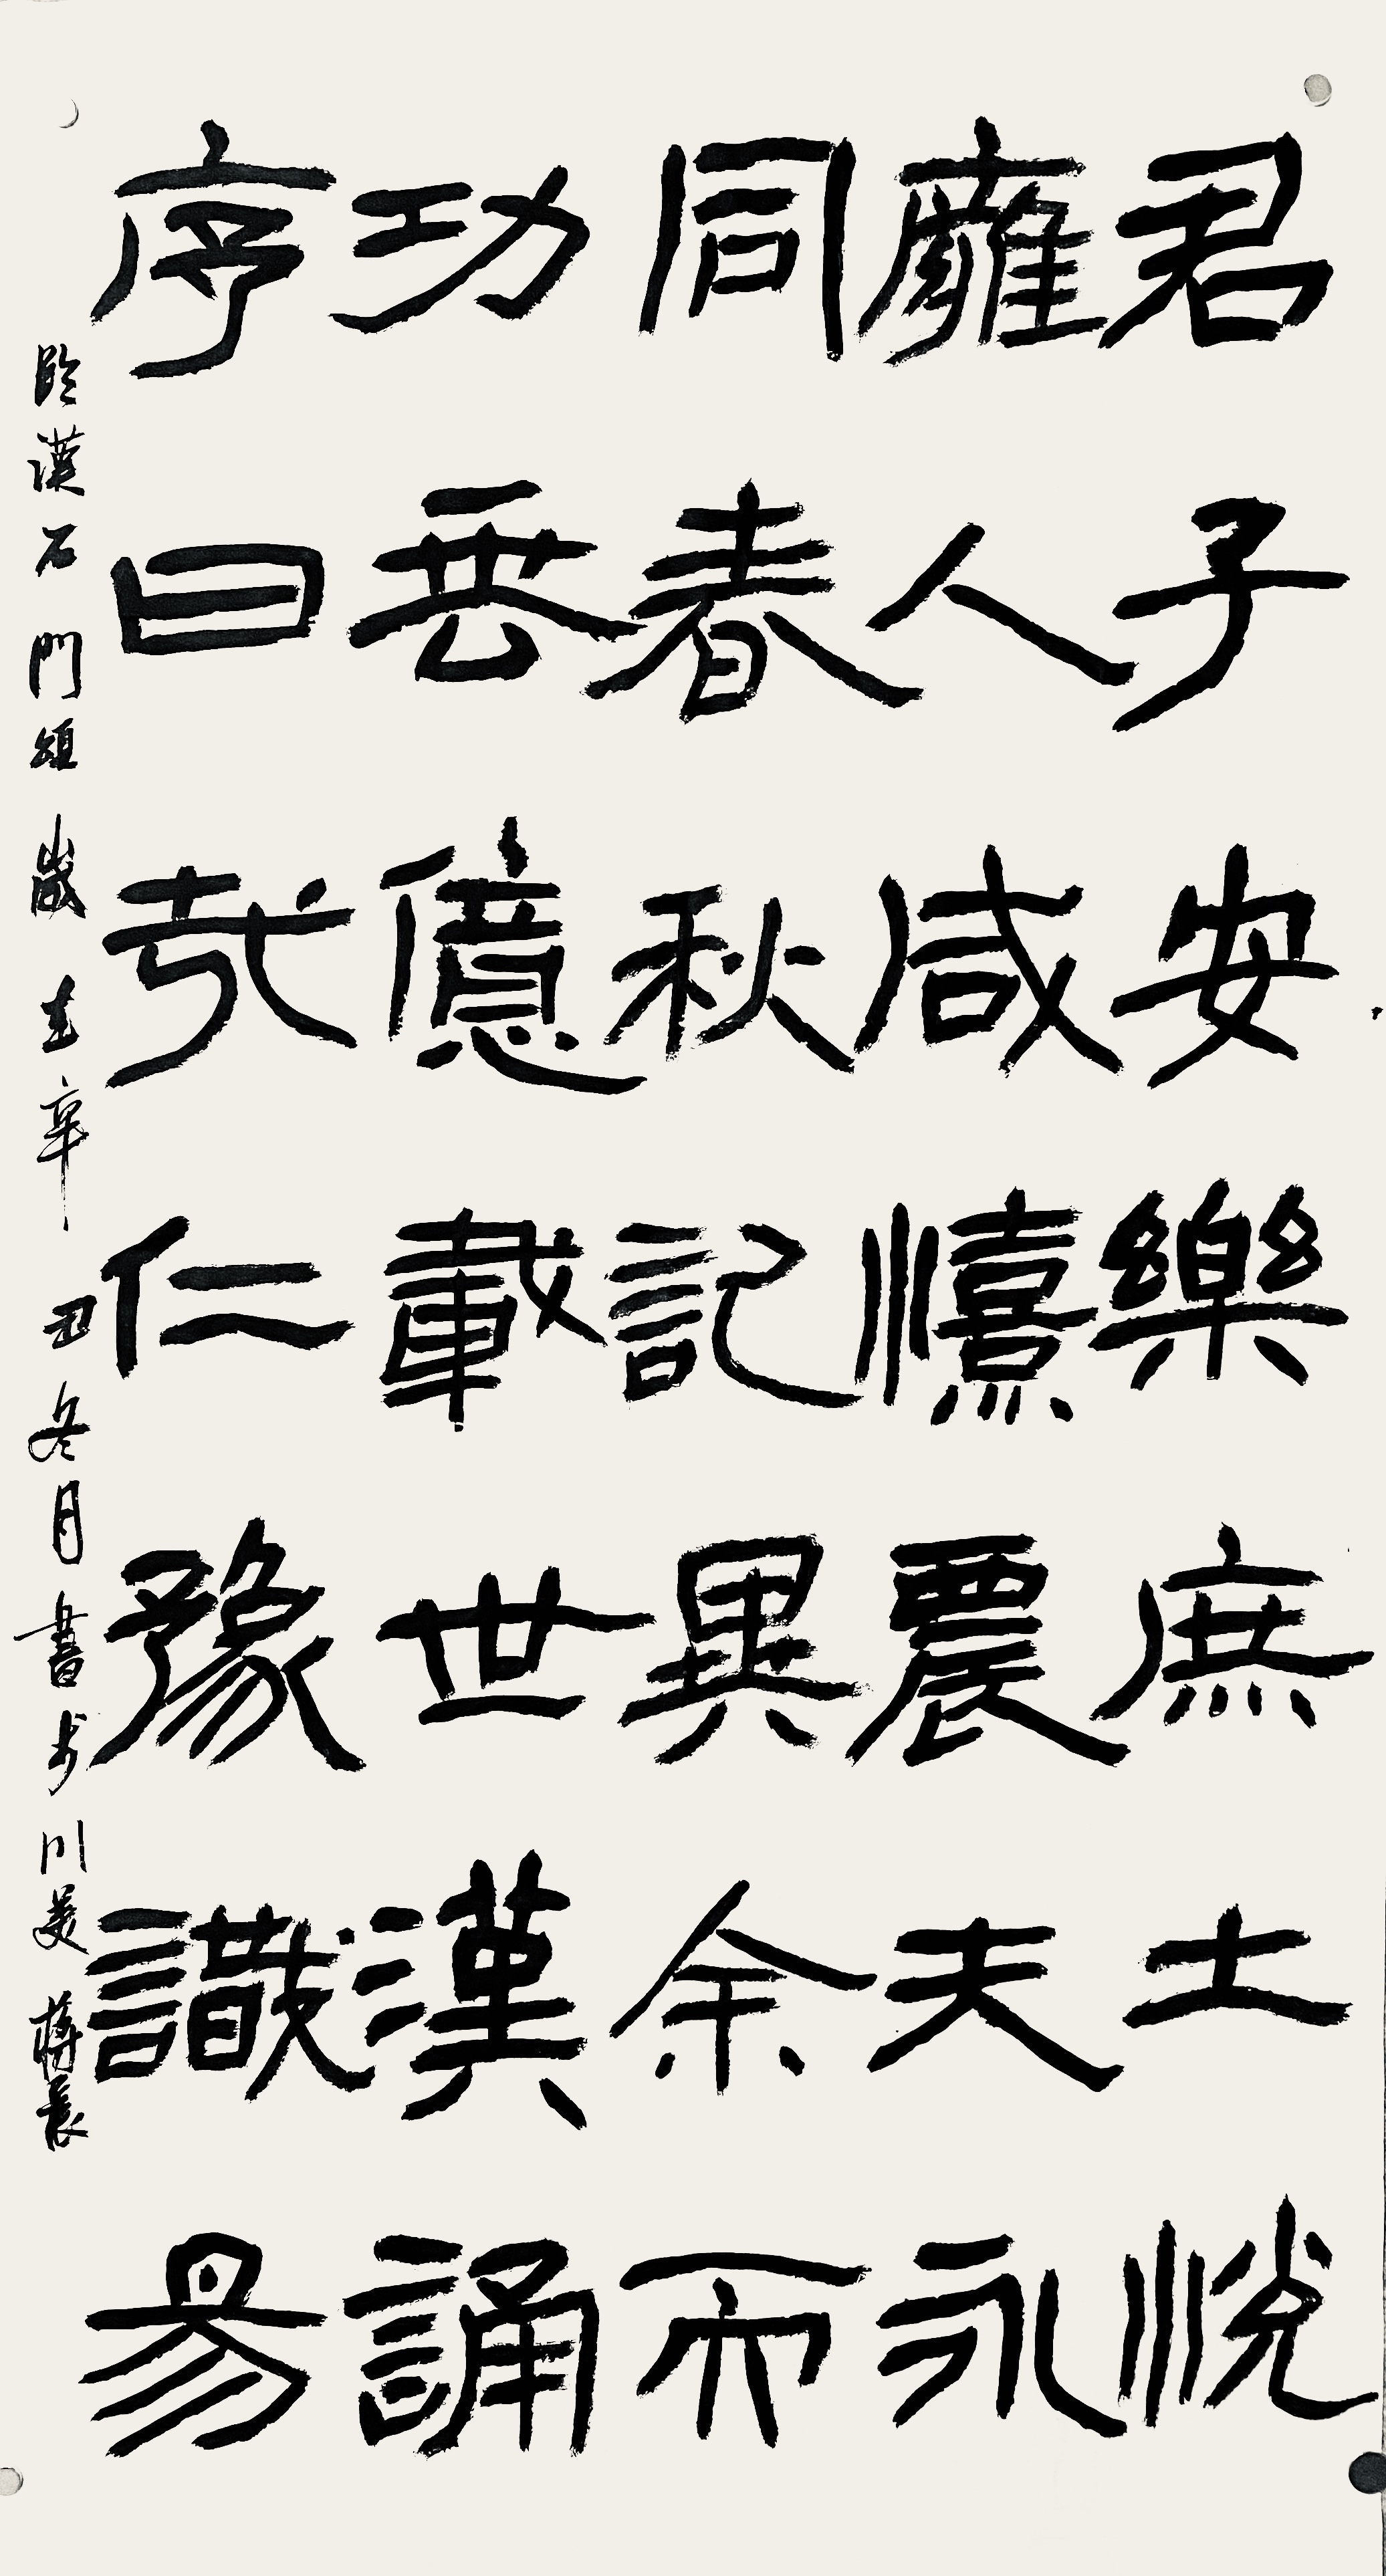 君子安樂庶士悅
雍人咸憘農夫永
同春秋記異余而
功垂億載世漢誦
序曰㢤仁豫識易
臨漢石門頌歲在辛丑冬月書於川美蔣長